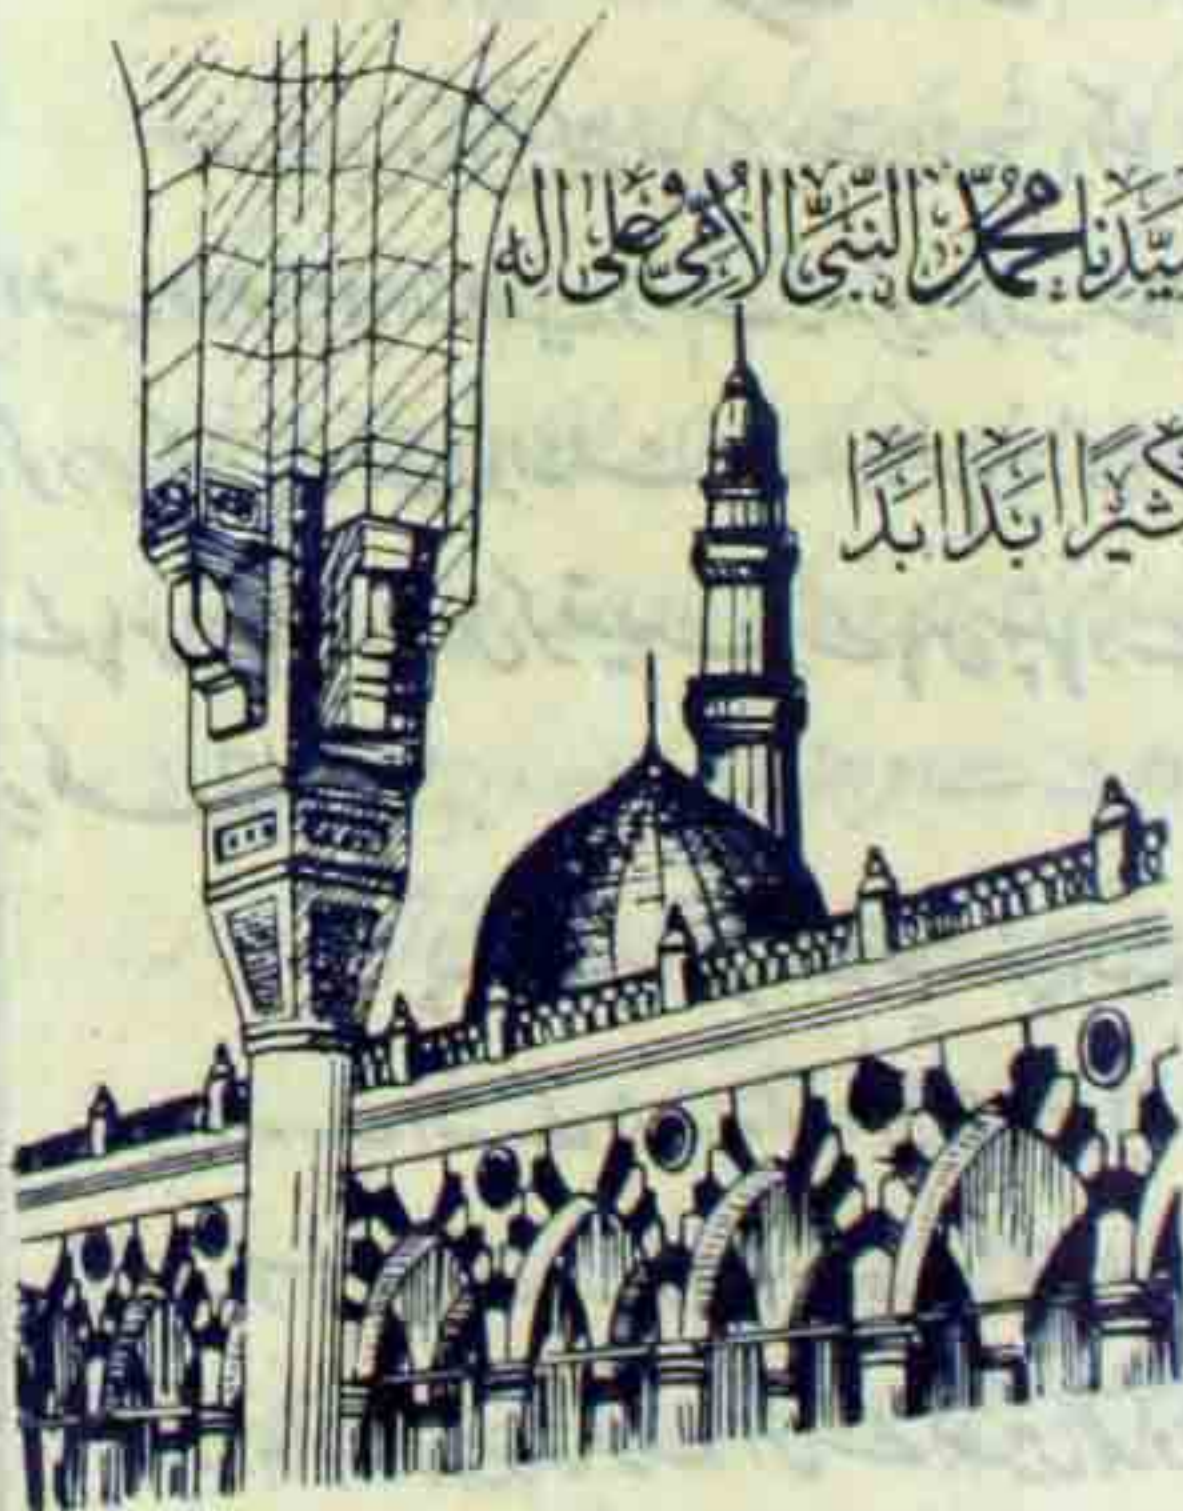 سَيِّدِنَا مُحَمَّدِ النَّبِيِّ الْاُمِّيِّ وَعَلٰى اٰلِهٖ
كَثِيْرًا اَبَدًا اَبَدًا